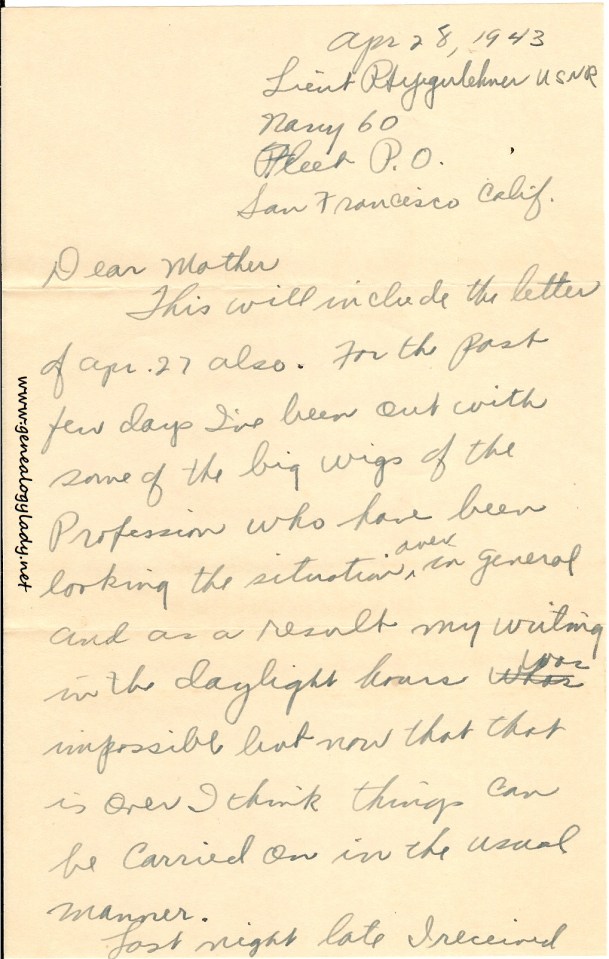 Apr 28, 1943
Lieut R H Yegerlehner USNR
Navy 60
Fleet P.O.
San Francisco Calif.
Dear Mother
This will include the letter
of Apr. 27 also. For the past
few days I've been out with
some of the big wigs of the
Profession who have been
looking the situation over in general
and as a result my writing
in the daylight hours was
impossible but now that that
is over I think things can
be carried on in the usual
manner.
Last night late I received
www.genealogylady.net